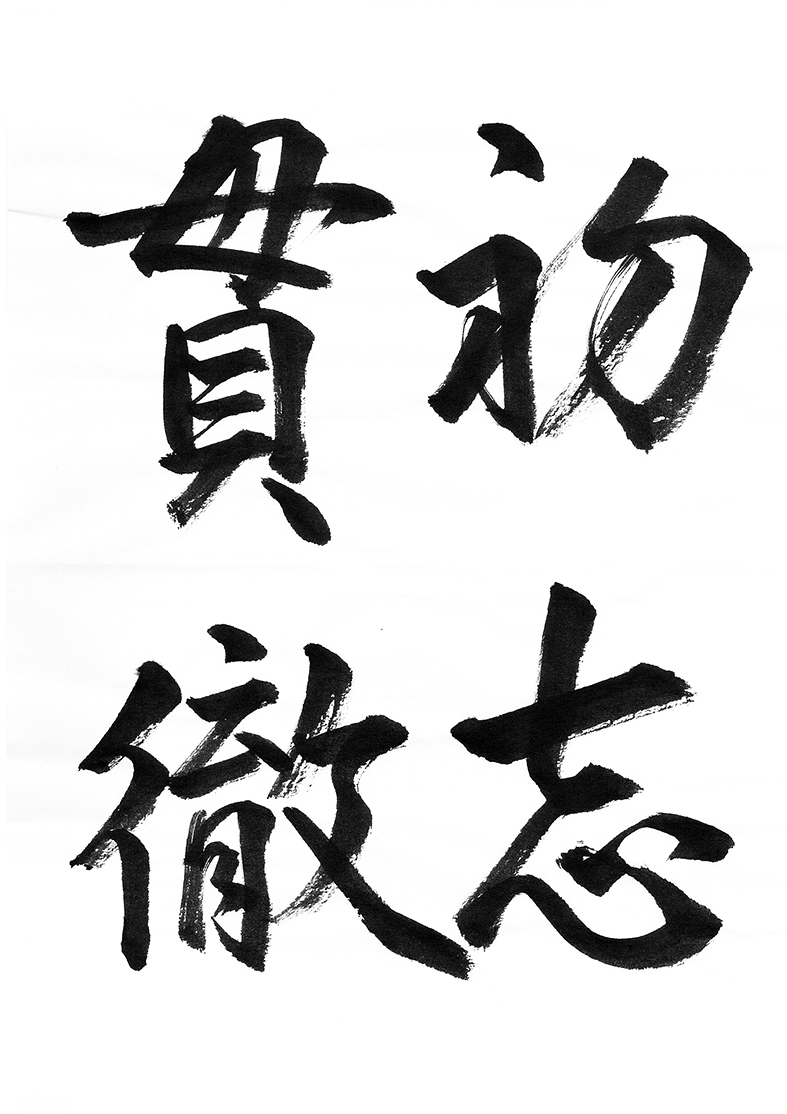 初志
貫徹